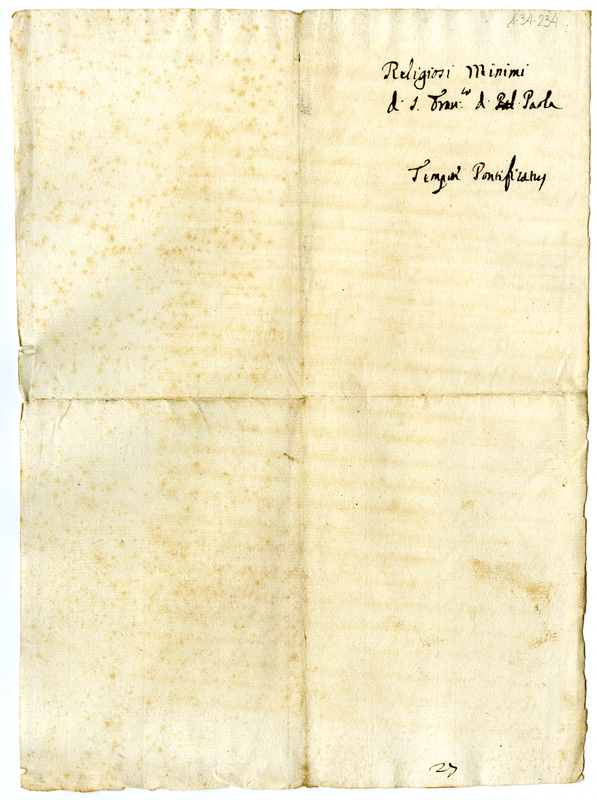 1-34-234
Religiosi Minimi
di S. Fran.co di Paola
Pontificatus
27